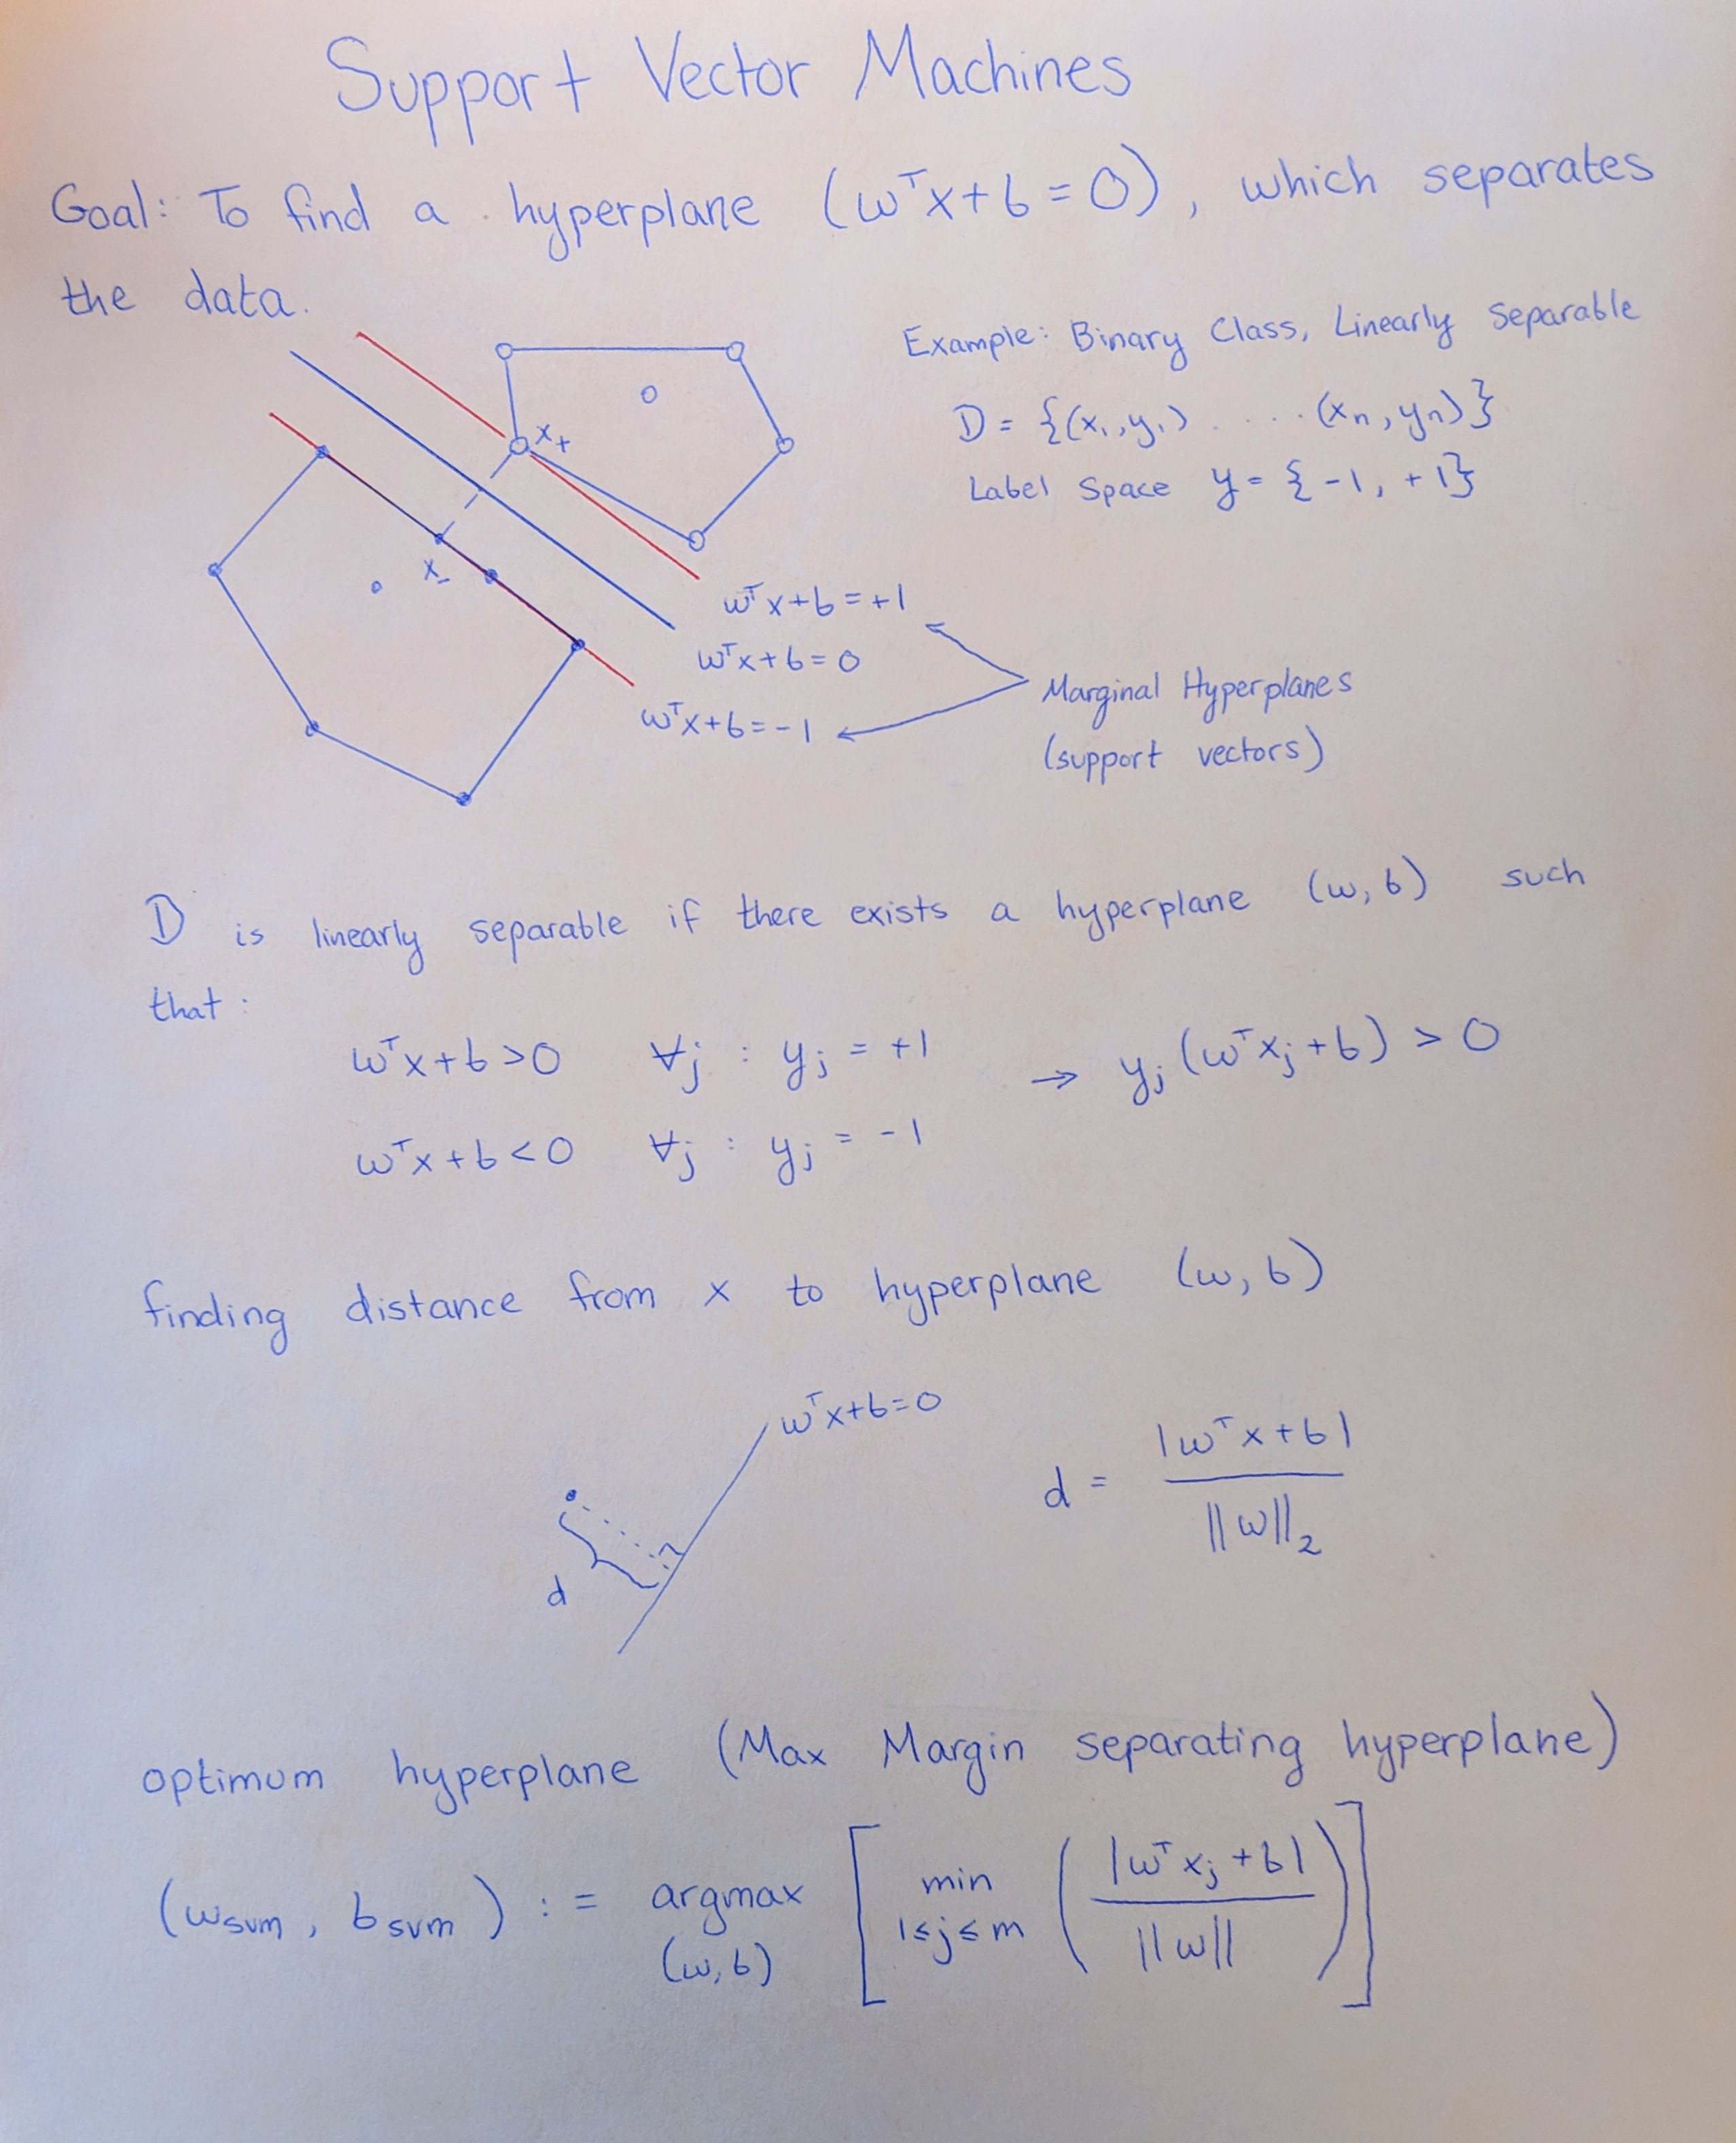 Support Vector Machines
Goal: To find a hyperplane (wᵀx+b=0), which separates
the data.
Example: Binary Class, Linearly Separable
D = {(x₁,y₁) .... (xn,yn)}
Label Space y = {-1, +1}
x₊
x₋
wᵀx+b=+1
wᵀx+b=0
wᵀx+b=-1
Marginal Hyperplanes
(support vectors)
D is linearly separable if there exists a hyperplane (w,b) such
that:
wᵀx+b>0 ∀j : yj = +1 → yj(wᵀxj+b) > 0
wᵀx+b<0 ∀j : yj = -1
finding distance from x to hyperplane (w,b)
wᵀx+b=0
d
d = |wᵀx+b| / ||w||₂
optimum hyperplane (Max Margin separating hyperplane)
(wsvm, bsvm) := argmax (w,b) [ min 1≤j≤m ( |wᵀxj+b| / ||w|| ) ]